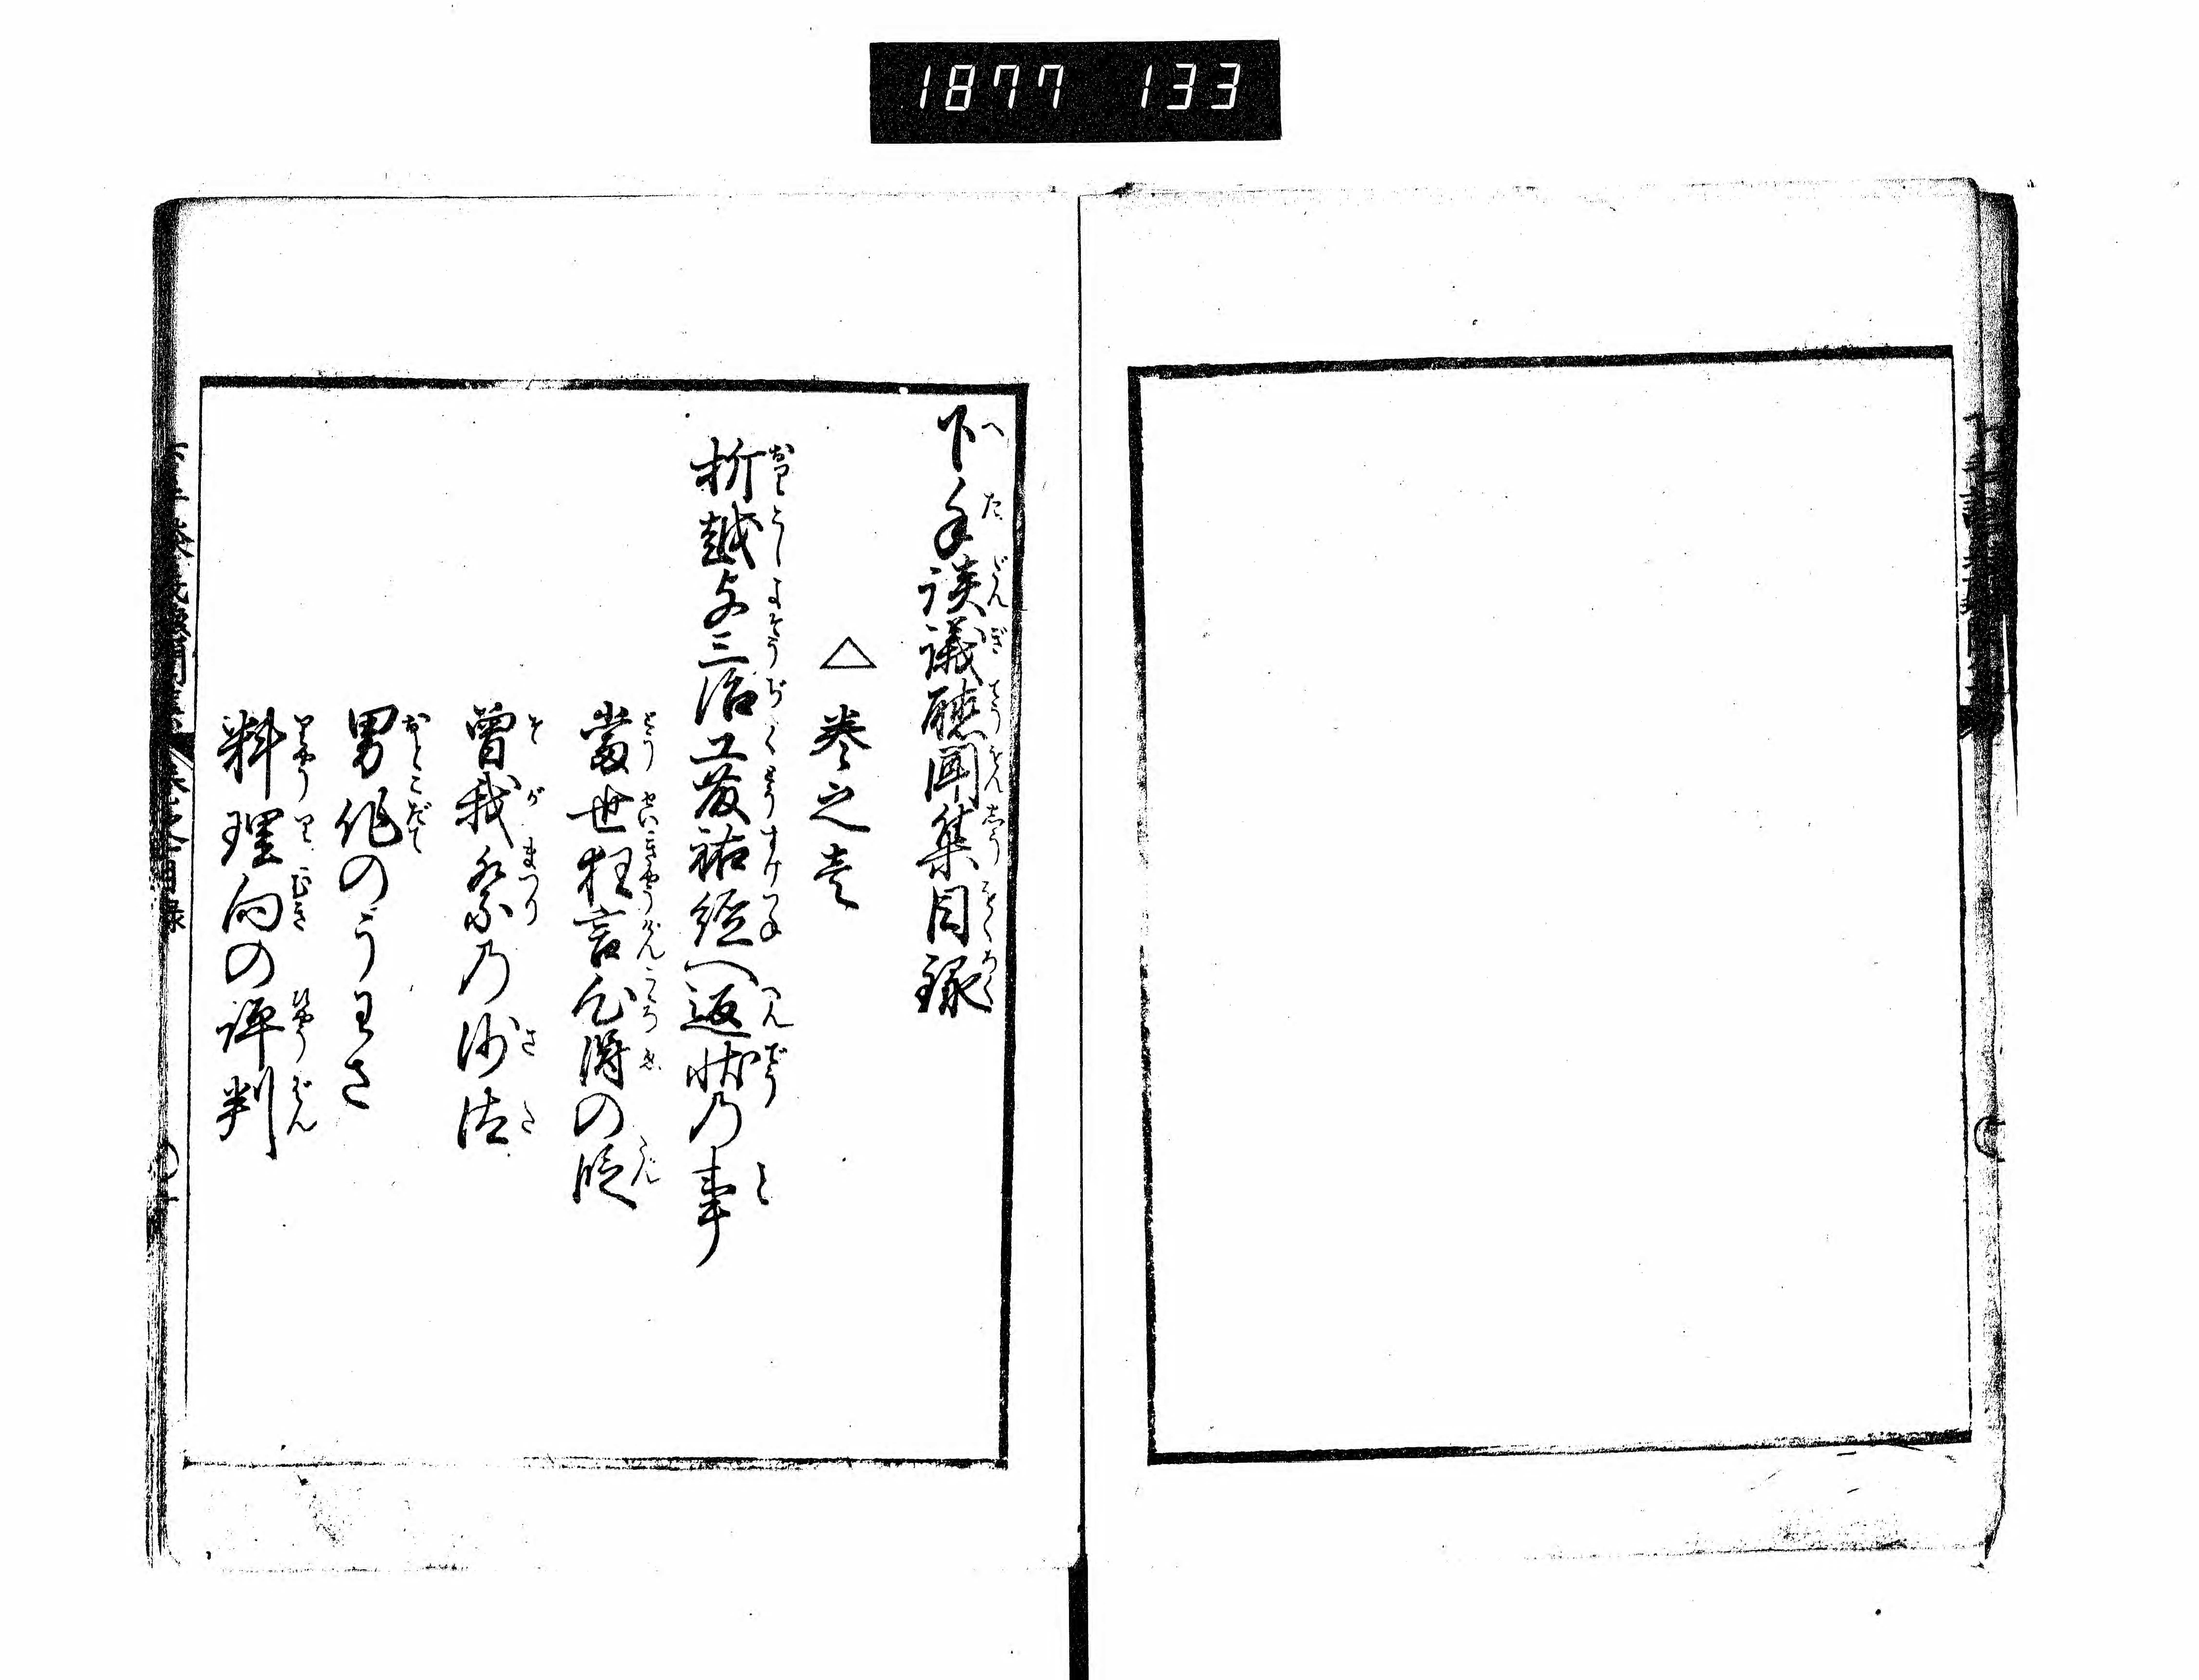 1877 133
下手談議聴聞集目録
△巻之壱
折越与三治工藤祐経へ返状乃事
當世狂言心得の段
曽我祭乃沙汰
男作のうわさ
料理向の評判